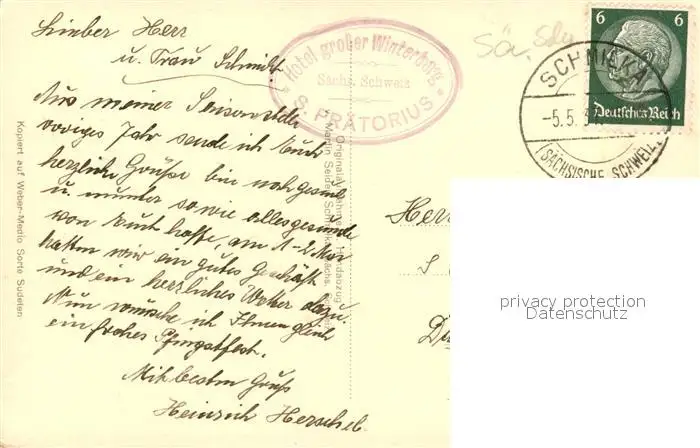 Lieber Herr
u. Frau Schmidt
Aus meiner
voriges Jahr sende ich Euch
herzliche Grüße bin noch gesund
u. munter sowie alles gesunde
von Euch hoffe, am 1-2 Mai
hatten wir ein gutes Geschäft
und ein herzliches Wetter dazu.
Nun wünsche ich Ihnen gleich
ein frohes Pfingstfest.
Mit besten Gruß
Heinrich Herschel
Hotel großer Winterberg
Sächs. Schweiz
S. PRÄTORIUS
Sä.
6 6
Deutsches Reich
SCHMILKA
-5.5.3
(SÄCHSISCHE SCHWEIZ)
Kopiert auf Weber-Medio Sorte Sudeten
Martin Seidel
Herr
S
D
privacy protection
Datenschutz